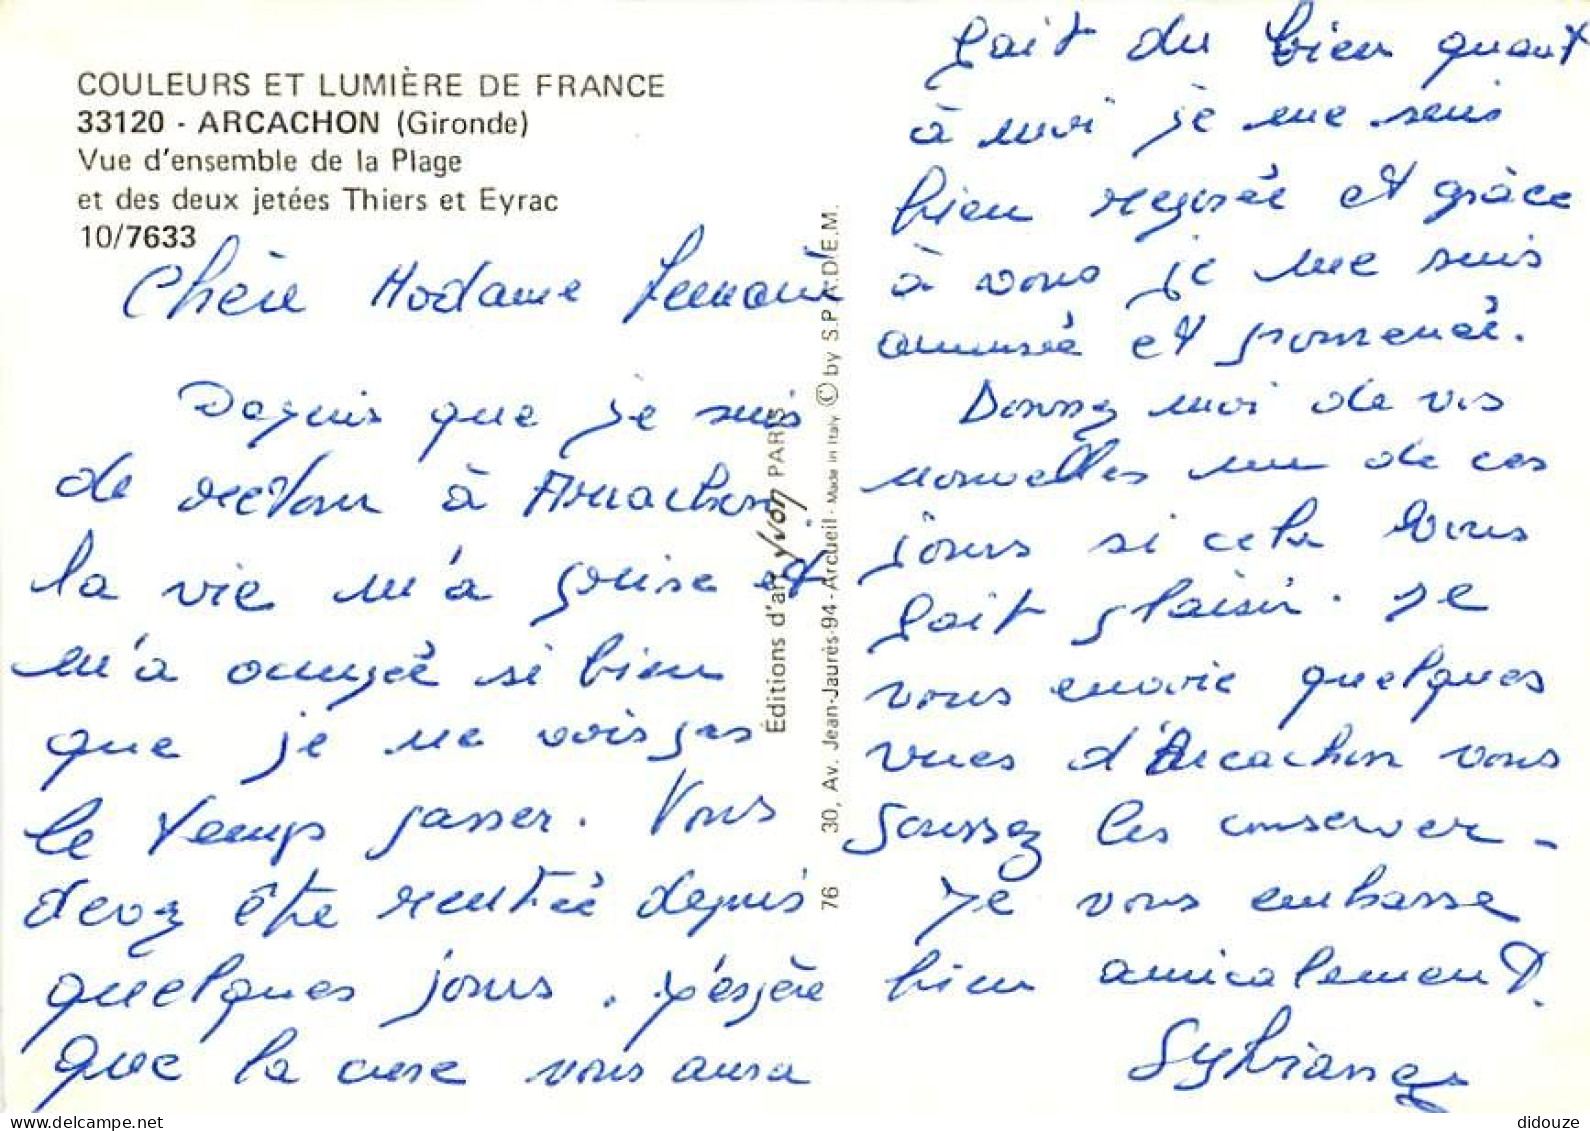 COULEURS ET LUMIÈRE DE FRANCE
33120 - ARCACHON (Gironde)
Vue d'ensemble de la Plage
et des deux jetées Thiers et Eyrac
10/7633
Chère Madame
Depuis que je suis
de retour à Arcachon
la vie m'a prise et
m'a occupée si bien
que je ne vois pas
le temps passer. Vous
devez être rentrée depuis
quelques jours. J'espère
que la cure vous aura
Éditions d'art Yvon PARIS
76 30, Av. Jean-Jaurès-94-Arcueil - Made in Italy © by S.P.A.D.E.M.
fait du bien quant
à moi je me sens
bien reposée et grâce
à vous je me suis
amusée et promenée.
Donnez moi de vos
nouvelles un de ces
jours si cela vous
fait plaisir. Je
vous envoie quelques
vues d'Arcachon vous
pouvez les conserver -
Je vous embrasse
bien amicalement.
Sylviane
didouze